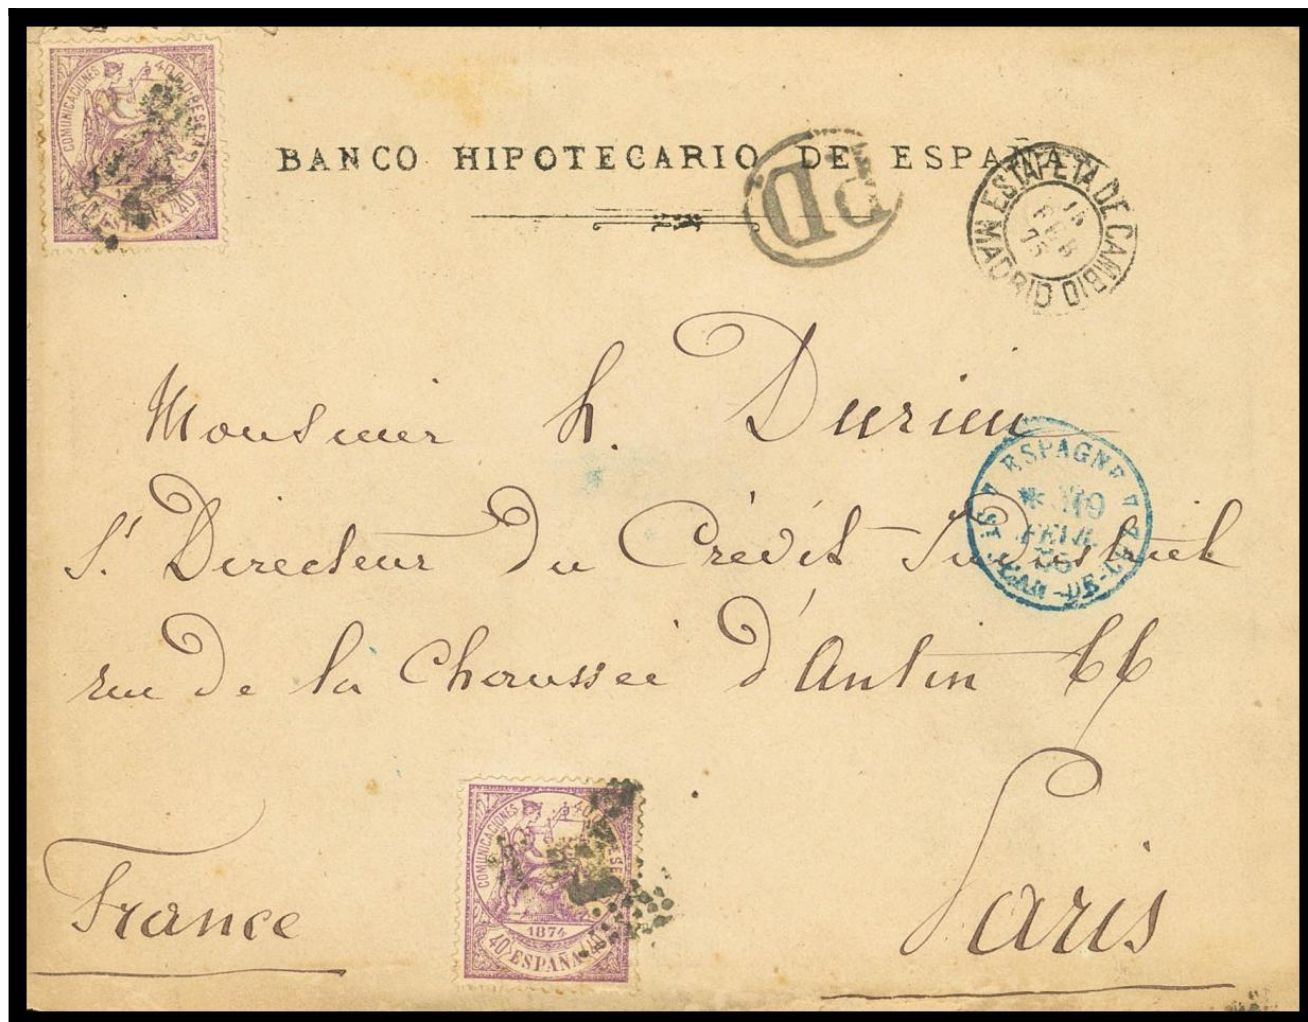 COMUNICACIONES 40 CS D PESETA
40 ESPAÑA 40
BANCO HIPOTECARIO DE ESPAÑA
PD
ESTAFETA DE CAMBIO
FEB
75
MADRID
Monsieur h. Durieu
S. Directeur du Crédit Industriel
rue de la Chaussée d'Antin 66
Paris
France
ESPAGNE
19
FEVR.
75
ST JEAN-DE-LUZ
COMUNICACIONES 40
1874
40 ESPAÑA